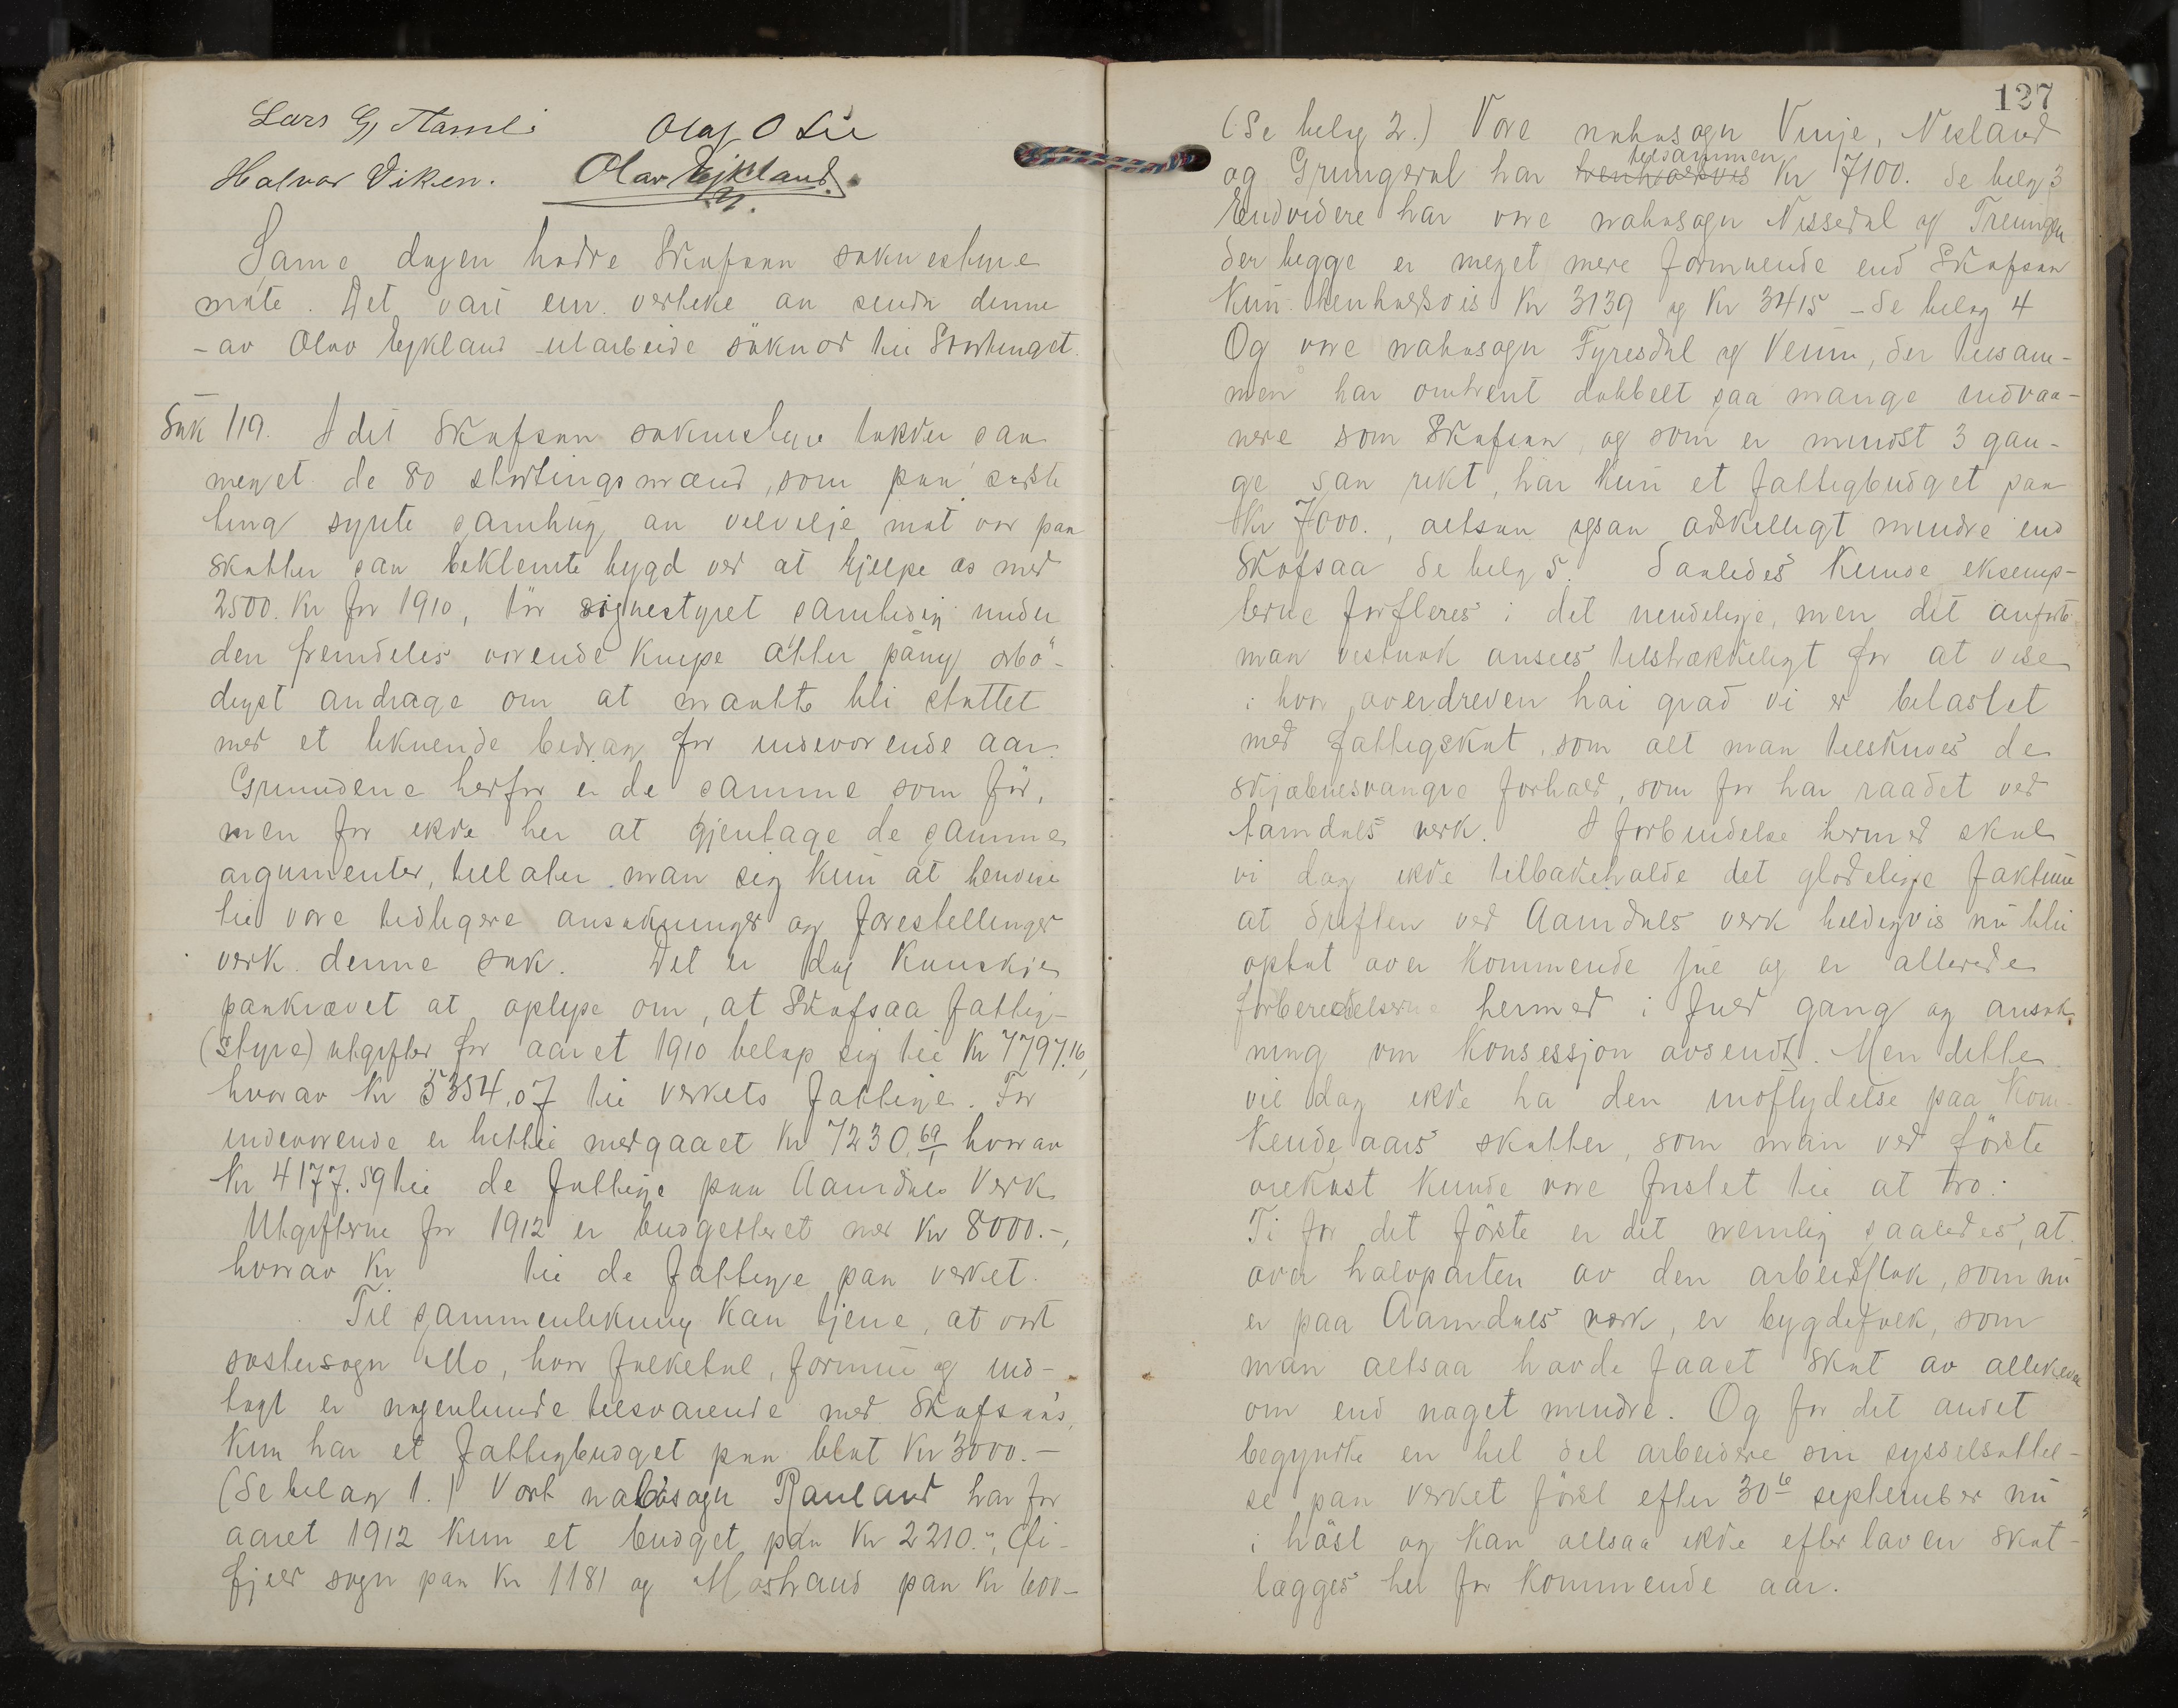 Lars G. Hamli Olaf O Lie
Halvor Viken. Olav Ejkland.
Same dagen hadde Skafsaa soknestyre
møte. Det vart ein. verteke aa senda denne
- av Olav Eykland utarbeide søknad til Stortinget.
Sak 119. I det Skafsaa soknestyre takker saa
meget de 80 stortingsmænd, som paa siste
ting synte samhug aa velvilje mot vor paa
skatter saa beklemte bygd ved at hjelpe os med
2500. Kr for 1910, tør sognestyret samtidig under
den fremdeles vorende knipe atter pâny ærbö-
digst andrage om at maatte bli støttet
med et liknende bedrag for indevorende aar.
Grundene herfor er de samme som för,
men for ikke her at gjentage de samme
argumenter, tillater man sig kun at henvise
til vore tidligere ansøkninger og forestellinger
verk. denne sak. Det er dog kanskje
paakrævet at oplyse om, at Skafsaa fattig-
(styre) utgifter for aaret 1910 beløp sig til Kr 7797.16,
hvorav Kr 5354.07 til verkets fattige. For
indevorende er hittil medgaaet Kr 7230,69 hvorav
Kr 4177.59 til de fattige paa Aamdals Verk
Utgifterne for 1912 er budgetteret med Kr 8000.-,
hvorav Kr til de fattige paa verket.
Til sammenlikning kan tjene, at vort
søstersogn Mo, hvor folketal, formue og ind-
tægt er nogenlunde tilsvarende med Skafsaa's,
kun har et fattigbudget paa blot Kr 3000.-
(Se bilag 1.) Vort nabosogn Rauland har for
aaret 1912 kun et budget paa Kr 2210.-, Øi-
fjell sogn paa Kr 1181 og Møstrand paa Kr 600-
127
(Se bilag 2.) Vore nabosogn Vinje, Nesland
og Grungedal har henholdsvis tilsammen Kr 7100. Se bilag 3
Endvidere har vore nabosogn Nissedal og Treungen
der begge er meget mere formuende end Skafsaa
kun henholdsvis Kr 3139 og Kr 3415 - Se bilag 4
Og vore nabosogn Fyresdal og Veum, der tilsam-
men har omtrent dobbelt saa mange indvaa-
nere som Skafsaa, og som er mindst 3 gan-
ge saa rikt, har kun et fattigbudget paa
Kr 7000., altsaa ogsaa adskilligt mindre end
Skafsaa Se bilag 5. Saaledes kunde eksemp-
lerne forfleres i det uendelige, men det anførte
man vistnok ansees tilstrækkeligt for at vise
i hvor overdreven høi grad vi er belastet
med fattigskat, som alt man tilskrives de
skjæbnesvangre forhold, som før har raadet ved
Aamdals verk. I forbindelse hermed skal
vi dog ikke tilbakeholde det glædelige faktum
at driften ved Aamdals verk heldigvis nu blir
optat over kommende jul og er allerede
forberedelserne hermed i fuld gang og ansøk-
ning om Konsessjon avsendt. Men dette
vil dog ikke ha den indflydelse paa kom-
mende aars skatter, som man ved første
øiekast kunde være fristet til at tro.
Ti for det første er det nemlig saaledes, at
over halvparten av den arbeidsflok, som nu
er paa Aamdals verk, er bygdefolk, som
man altsaa havde faaet skat av allikevel
om end noget mindre. Og for det andet
begyndte en hel del arbeidere sin sysselsættel-
se paa verket først efter 30te september nu
i høst og kan altsaa ikke efter loven skat-
lægges her for kommende aar.